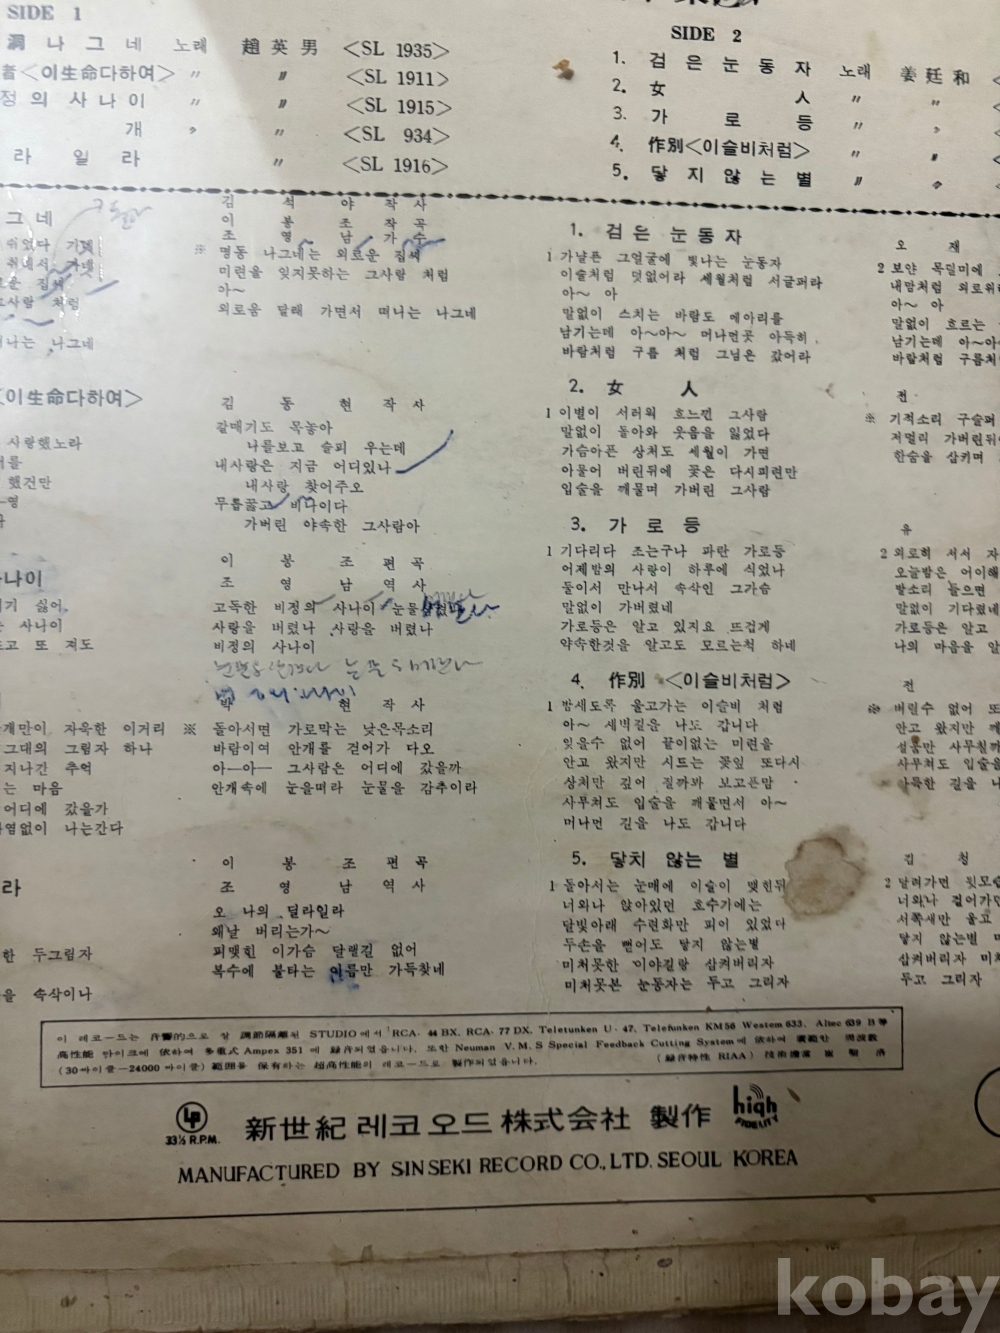 SIDE 1
洞 나 그 네 노래 趙 英 男 <SL 1935>
者<이生命다하여> 〃 〃 <SL 1911>
정 의 사 나 이 〃 〃 <SL 1915>
개 〃 〃 <SL 934>
라 일 라 〃 <SL 1916>
SIDE 2
1. 검 은 눈 동 자 노래 姜 廷 和 <
2. 女 人 〃 〃 <
3. 가 로 등 〃 〃 <
4. 作別<이슬비처럼> 〃 〃 <
5. 닿 지 않 는 별 〃 〃 <
그 네
김 석 야 작 사
이 봉 조 작 곡
조 영 남 가 수
쉬었다 가네
※ 명동 나그네는 외로운 집씨
쉬네서 가네
미련을 잊지못하는 그사람 처럼
로운 집씨
아~
그사람 처럼
외로움 달래 가면서 떠나는 나그네
나는 나그네
<이生命다하여>
김 동 현 작 사
갈매기도 목놓아
사랑했노라
나를보고 슬피 우는데
를
내사랑은 지금 어디있나
했건만
내사랑 찾어주오
무릎꿇고 비나이다
가버린 야속한 그사람아
나이
이 봉 조 편 곡
조 영 남 역 사
기 싫어
고독한 비정의 사나이 눈물
사나이
사랑을 버렸나 사랑을 버렸나
고 또 져도
비정의 사나이
박 현 작 사
개만이 자욱한 이거리 ※ 돌아서면 가로막는 낮은목소리
그대의 그림자 하나 바람이여 안개를 걷어가 다오
지나간 추억 아—아— 그사람은 어디에 갔을까
는 마음 안개속에 눈을떠라 눈물을 감추이라
어디에 갔을가
염없이 나는간다
라
이 봉 조 편 곡
조 영 남 역 사
오 나의 딜라일라
왜날 버리는가~
한 두그림자 피맺힌 이가슴 달랠길 없어
복수에 불타는 마음만 가득찾네
을 속삭이나
1. 검 은 눈 동 자
오 재
1 가냘픈 그얼굴에 빛나는 눈동자
이슬처럼 덧없어라 세월처럼 서글퍼라
아~ 아
말없이 스치는 바람도 메아리를
남기는데 아~아~ 머나먼곳 아득히
바람처럼 구름 처럼 그님은 갔어라
2 보얀 목덜미에
내맘처럼 외로위
아~ 아
말없이 흐르는
남기는데 아~아
바랄처럼 구름처
2. 女 人
전
1 이별이 서러워 흐느낀 그사람
말없이 돌아와 웃음을 잃었다
가슴아픈 상처도 세월이 가면
아물어 버린뒤에 꽃은 다시피련만
입술을 깨물며 가버린 그사람
※ 기적소리 구슬퍼
저멀리 가버린뒤
한숨을 삼키며
3. 가 로 등
유
1 기다리다 조는구나 파란 가로등
어제밤의 사랑이 하루에 식었나
둘이서 만나서 속삭인 그가슴
말없이 가버렸네
가로등은 알고 있지요 뜨겁게
약속한것을 알고도 모르는척 하네
2 외로히 서서 자
오늘밤은 어이해
발소리 들으면
말없이 기다렸네
가로등은 알고
나의 마음을 알
4. 作別 <이슬비처럼>
전
1 밤새도록 울고가는 이슬비 처럼
아~ 새벽길을 나도 갑니다
잊을수 없어 끝이없는 미련을
안고 왔지만 시드는 꽃잎 또다시
상처만 깊어 질까봐 보고픈맘
사무쳐도 입술을 깨물면서 아~
머나먼 길을 나도 갑니다
※ 버릴수 없어 또
안고 왔지만 깨
설흠만 사무칠까
사무쳐도 입술을
아득한 길을 나
5. 닿치 않는 별
김 청
1 돌아서는 눈매에 이슬이 맺힌뒤
너와나 앉아있던 호수가에는
달빛아래 수련화만 피어 있었다
두손을 뻗어도 닿지 않는별
미처못한 이야길랑 삼켜버리자
미처못본 눈동자는 두고 그리자
2 달려가면 뒷모습
너와나 걸어가던
서쪽새만 울고
닿지 않는별
삼켜버리자 미처
두고 그리자
이 레코—드는 音響的으로 잘 調節隔離된 STUDIO에서 RCA. 44 BX. RCA. 77 DX. Teletunken U-47. Telefunken KM 56 Western 633. Altec 639 B等
高性能 마이크에 依하여 多重式 Ampex 351 에 錄音되였읍니다. 또한 Neuman V.M.S Special Feedback Cutting System에 依하여 廣範한 周波數
(30싸이클—24000 싸이클) 範圍를 保有하는 超高性能의 레코—드로 製作되였읍니다. (錄音特性 RIAA) 技術擔當 崔 聖 濟
LP
33⅓ R.P.M.
新世紀 레코오드 株式会社 製作
high
FIDELITY
MANUFACTURED BY SIN SEKI RECORD CO., LTD. SEOUL KOREA
kobay